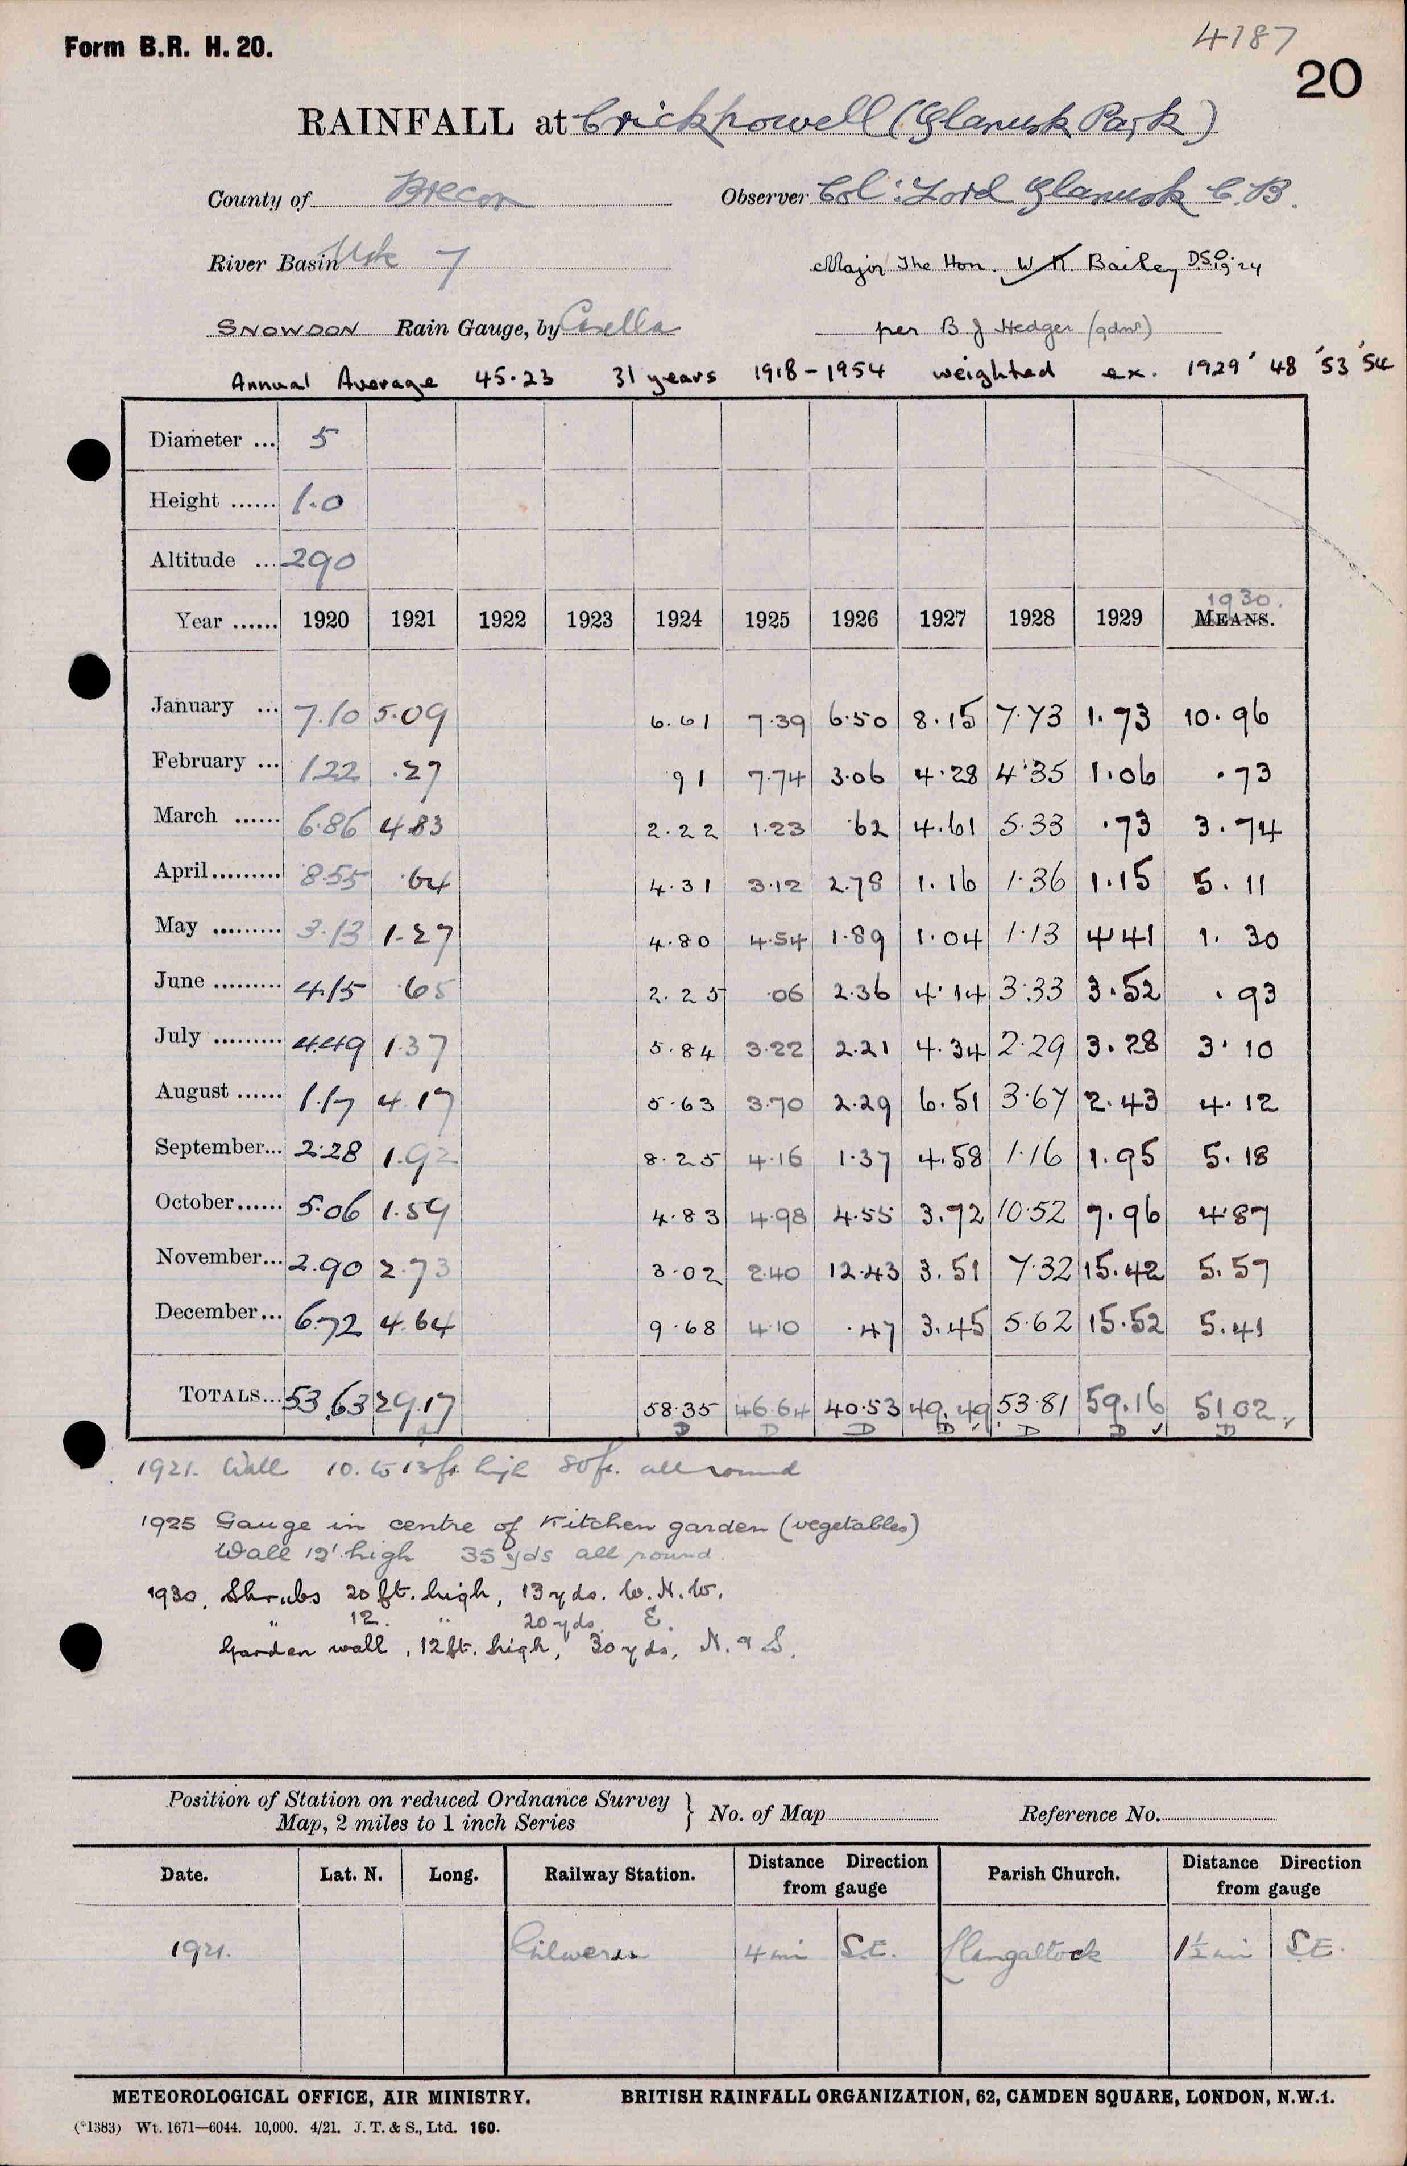 4187
Form B.R. H. 20.
20
RAINFALL at Crickhowell (Glanusk Park)
County of Brecon Observer Col: Lord Glanusk C.B.
River Basin Usk 7 Major The Hon. W R Bailey D.S.O. 1924
SNOWDON Rain Gauge, by Casella per B J Hedger (gdnr)
Annual Average 45.23 31 years 1918-1954 weighted ex. 1929 '48 '53 '54
Diameter ... 5
Height ...... 1.0
Altitude ... 290
1930.
Year ...... 1920 1921 1922 1923 1924 1925 1926 1927 1928 1929 MEANS.
January ... 7.10 5.09 6.61 7.39 6.50 8.15 7.73 1.73 10.96
February ... 1.22 .27 91 7.74 3.06 4.28 4.35 1.06 .73
March ...... 6.86 4.83 2.22 1.23 .62 4.61 5.33 .73 3.74
April......... 8.55 .64 4.31 3.12 2.78 1.16 1.36 1.15 5.11
May ......... 3.13 1.27 4.80 4.54 1.89 1.04 1.13 4.41 1.30
June ......... 4.15 .65 2.25 .06 2.36 4.14 3.33 3.52 .93
July ......... 4.49 1.37 5.84 3.22 2.21 4.34 2.29 3.28 3.10
August ...... 1.17 4.17 5.63 3.70 2.29 6.51 3.67 2.43 4.12
September... 2.28 1.92 8.25 4.16 1.37 4.58 1.16 1.95 5.18
October...... 5.06 1.59 4.83 4.98 4.55 3.72 10.52 7.96 4.87
November... 2.90 2.73 3.02 2.40 12.43 3.51 7.32 15.42 5.57
December... 6.72 4.64 9.68 4.10 .47 3.45 5.62 15.52 5.41
TOTALS... 53.63 29.17 58.35 46.64 40.53 49.49 53.81 59.16 51.02
D D D D D D D
1921. Wall 10. to 13 ft. high 80 ft. all round
1925 Gauge in centre of Kitchen garden (vegetables)
Wall 12' high 35 yds all round.
1930. Shrubs 20 ft. high, 13 yds. W.N.W.
" 12. " 20 yds. E.
Garden wall, 12 ft. high, 30 yds, N. & S.
Position of Station on reduced Ordnance Survey
Map, 2 miles to 1 inch Series } No. of Map Reference No.
Date. Lat. N. Long. Railway Station. Distance Direction from gauge Parish Church. Distance Direction from gauge
1921. Gilwern 4 mi S.E. Llangattock 1½ mi S.E.
METEOROLOGICAL OFFICE, AIR MINISTRY. BRITISH RAINFALL ORGANIZATION, 62, CAMDEN SQUARE, LONDON, N.W.1.
(*1383) Wt. 1671—6044. 10,000. 4/21. J. T. & S., Ltd. 160.